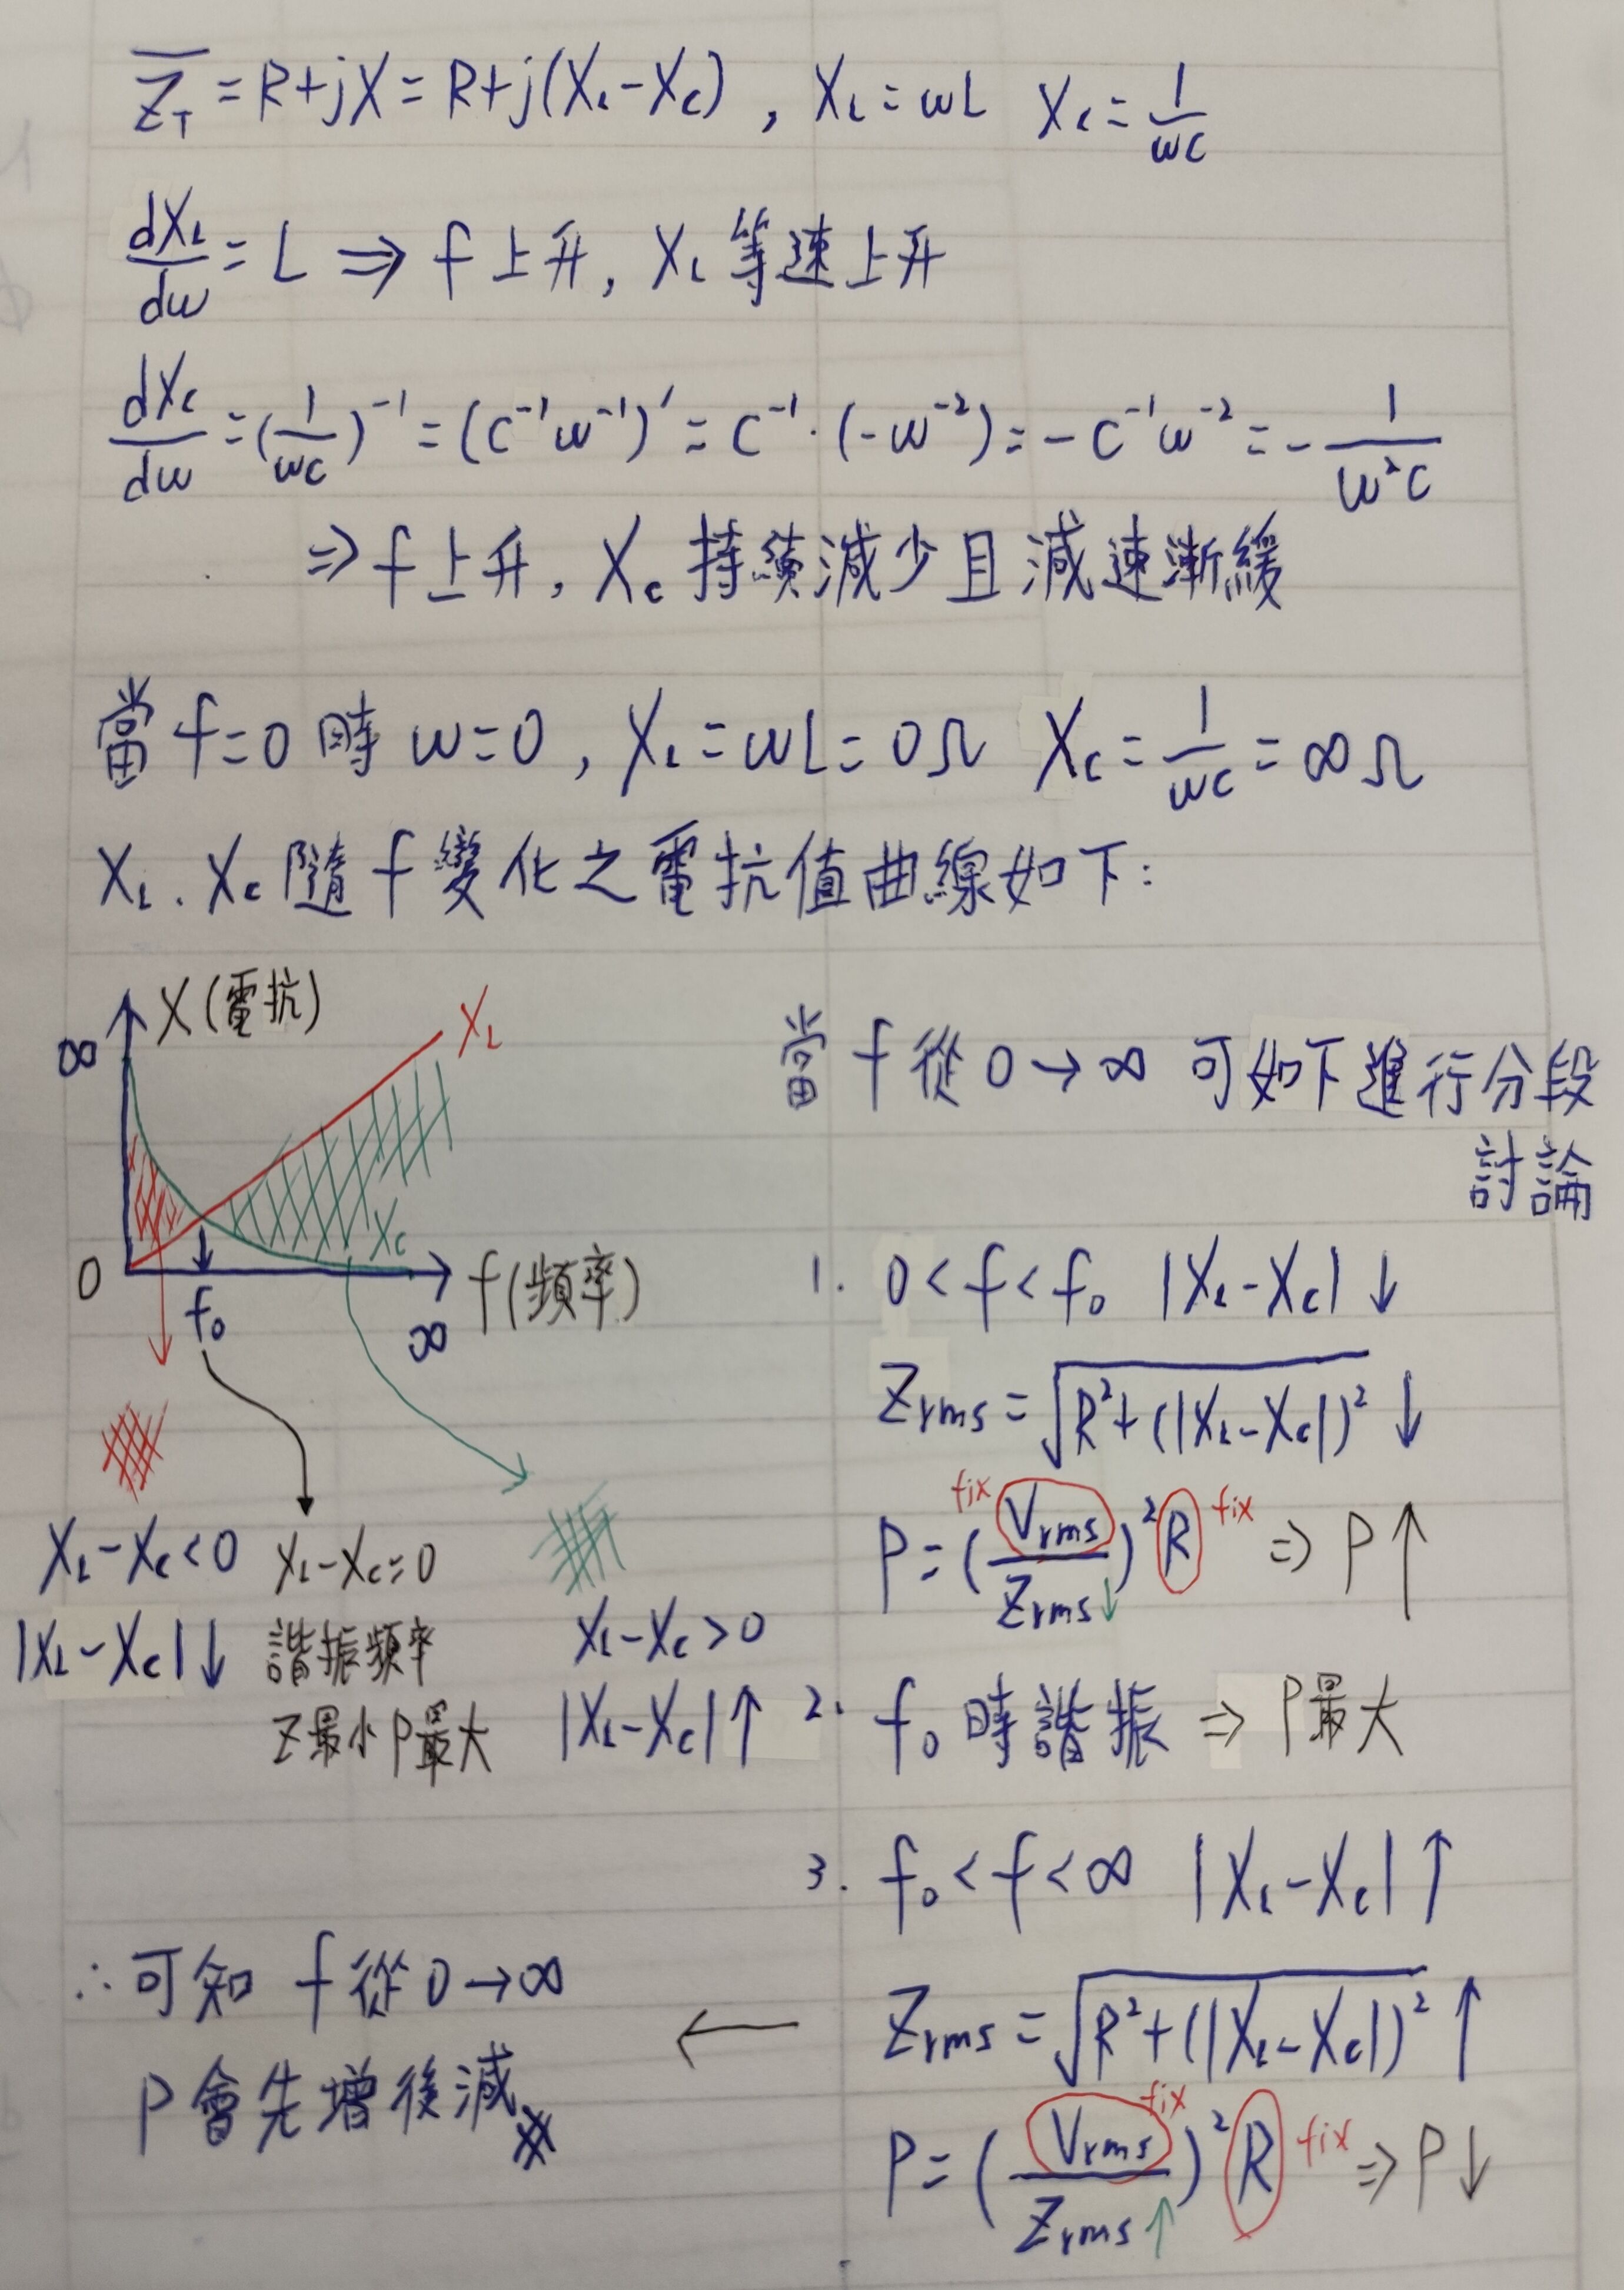 Z̅_T = R+jX = R+j(X_L-X_C) , X_L = ωL X_C = 1/ωC
dX_L/dω = L ⇒ f 上升, X_L 等速上升
dX_C/dω = (1/ωC)⁻¹ = (C⁻¹ω⁻¹)′ = C⁻¹·(-ω⁻²) = -C⁻¹ω⁻² = -1/ω²C
⇒ f 上升, X_C 持續減少且減速漸緩
當 f=0 時 ω=0 , X_L = ωL = 0Ω X_C = 1/ωC = ∞Ω
X_L . X_C 隨 f 變化之電抗值曲線如下:
X (電抗)
∞
X_L
X_C
0
f_0
∞
f (頻率)
X_L-X_C<0
|X_L-X_C|↓
X_L-X_C=0
諧振頻率
Z最小P最大
X_L-X_C>0
|X_L-X_C|↑
當 f 從 0→∞ 可如下進行分段
討論
1. 0<f<f_0 |X_L-X_C|↓
Z_rms = √(R²+(|X_L-X_C|)²) ↓
P = (V_rms fix / Z_rms↓)² R fix ⇒ P↑
2. f_0 時諧振 ⇒ P最大
3. f_0<f<∞ |X_L-X_C|↑
Z_rms = √(R²+(|X_L-X_C|)²) ↑
P = (V_rms fix / Z_rms↑)² R fix ⇒ P↓
←
∴可知 f 從 0→∞
P會先增後減 #